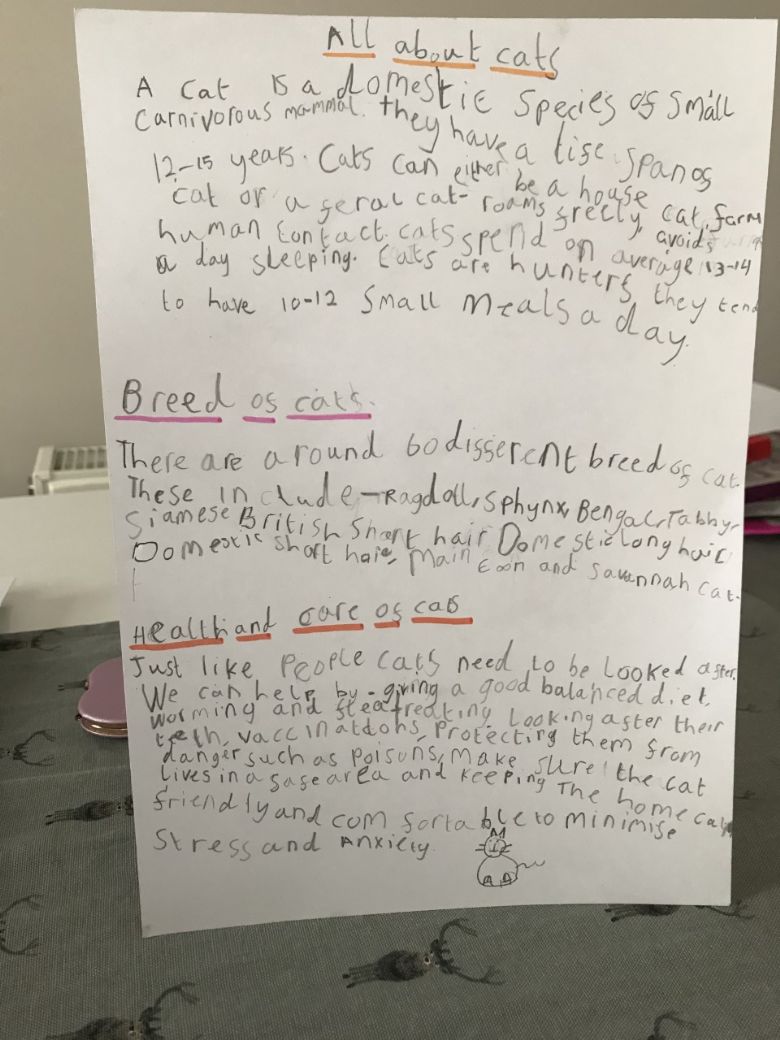 All about cats
A cat is a domestic species of small
carnivorous mammal. they have a life span of
12-15 years. Cats can either be a house
cat or a feral cat- roams freely, cat, farm
human contact. cats spend on average 13-14
avoids
a day sleeping. Cats are hunters, they tend
to have 10-12 small meals a day.
Breed of cats.
There are around 60 different breed of cat.
These include - Ragdoll, Sphynx, Bengal, Tabby,
Siamese British Short hair Domestic long hair
Domestic short hair, Main Coon and Savannah cat.
Health and care of cats
Just like people cats need to be looked after.
We can help by - giving a good balanced diet,
worming and flea treating looking after their
teeth, vaccinations, protecting them from
danger such as poisons, make sure the cat
lives in a safe area and keeping The home cat
friendly and comfortable to minimise
Stress and Anxiety.